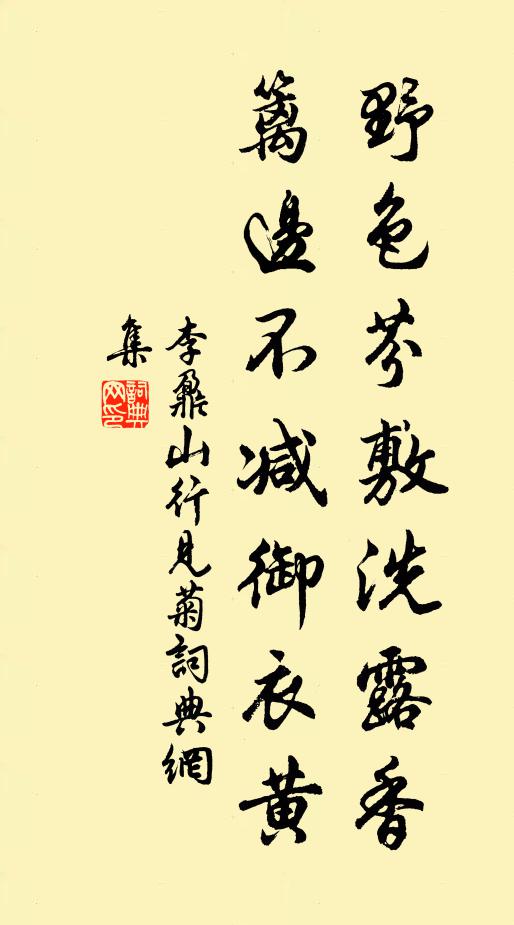 野色芬敷洗露香
籬邊不減御衣黃
李鼐山行見菊詞典網
集
詞典
网印